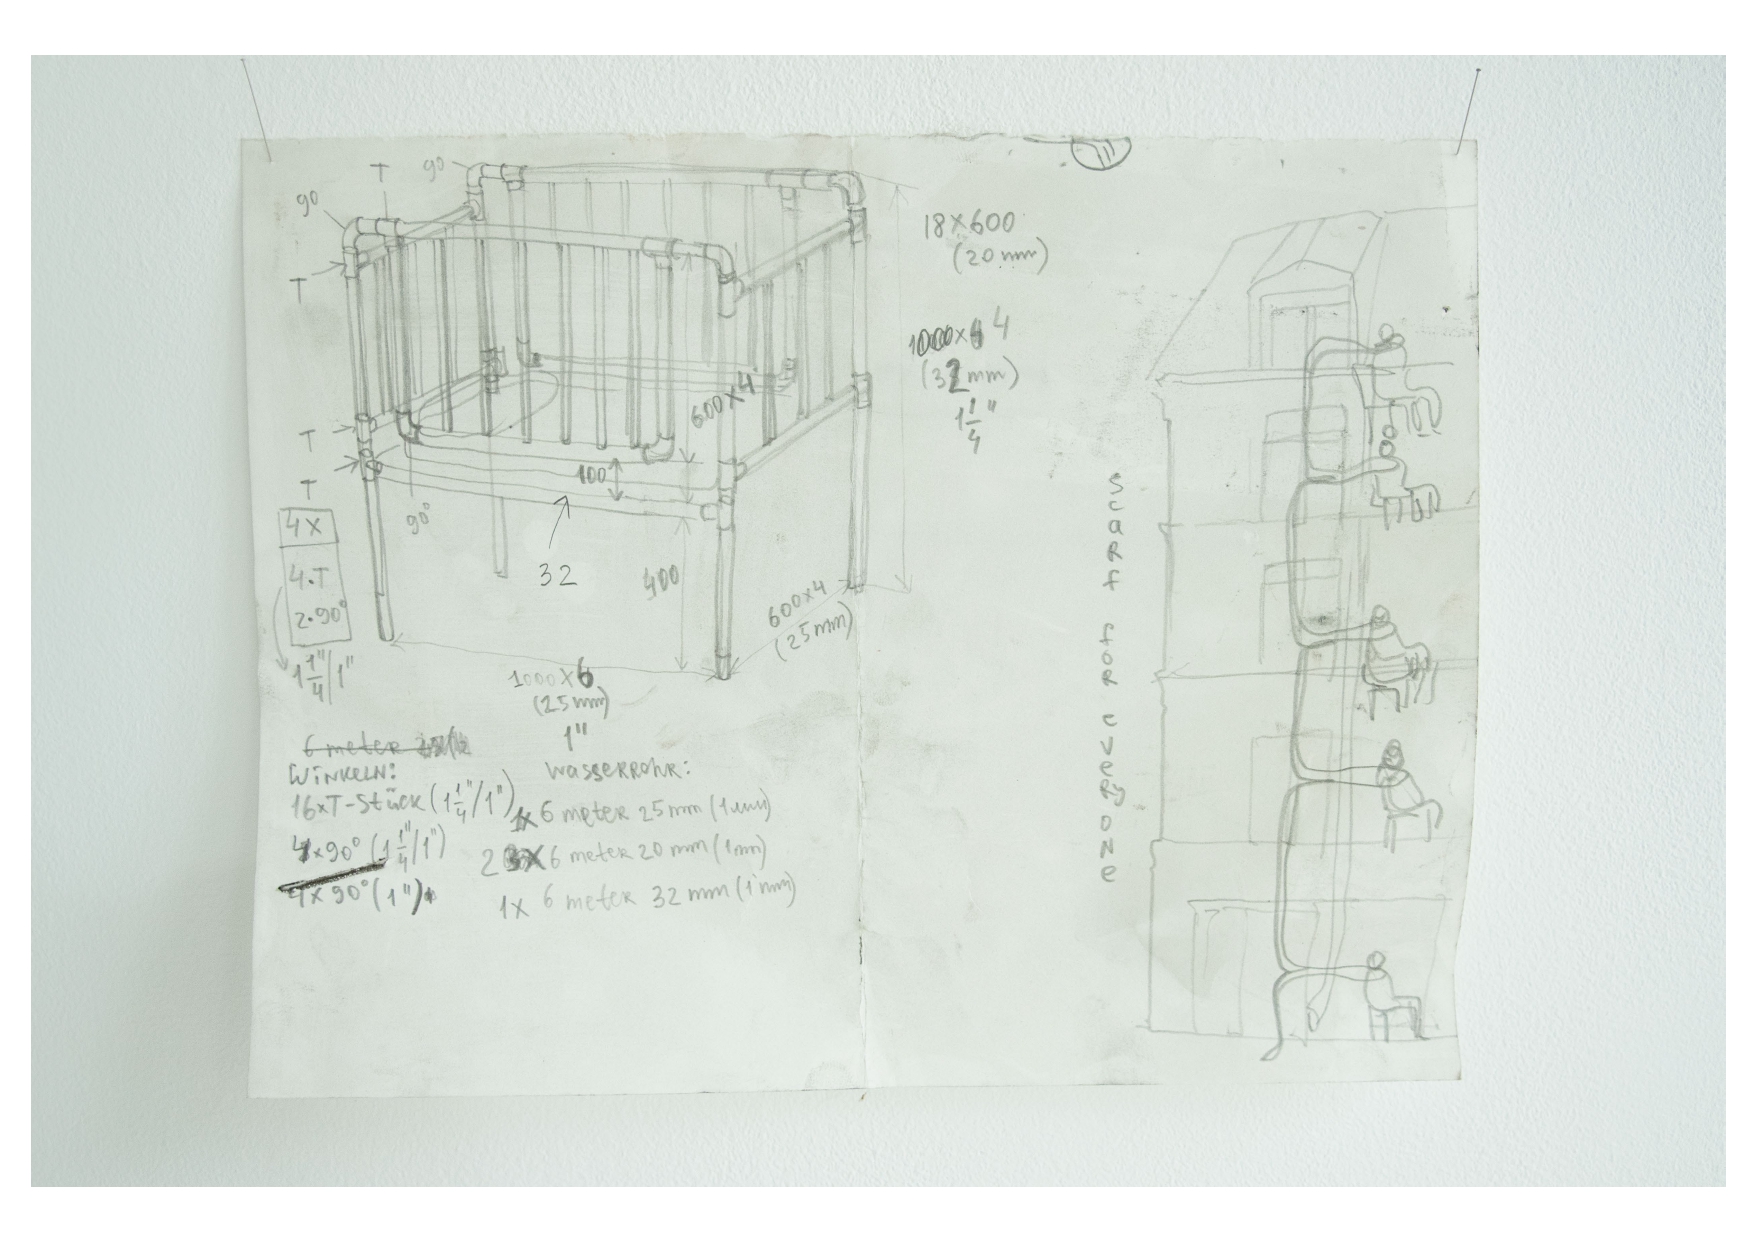 T
90
90
T
T
T
4X
4.T
2.90°
1 1/4"/1"
90°
32
100
600x4
400
600x4
(25mm)
1000x6
(25mm)
1"
18x600
(20mm)
1000x4
(32mm)
1 1/4"
6 meter
WINKELN:
16xT-Stück (1 1/4"/1")
4x90° (1 1/4"/1")
4x 90° (1")
Wasserrohr:
1x 6 meter 25mm (1mm)
2 x 6 meter 20 mm (1mm)
1x 6 meter 32 mm (1mm)
scarf for everyone